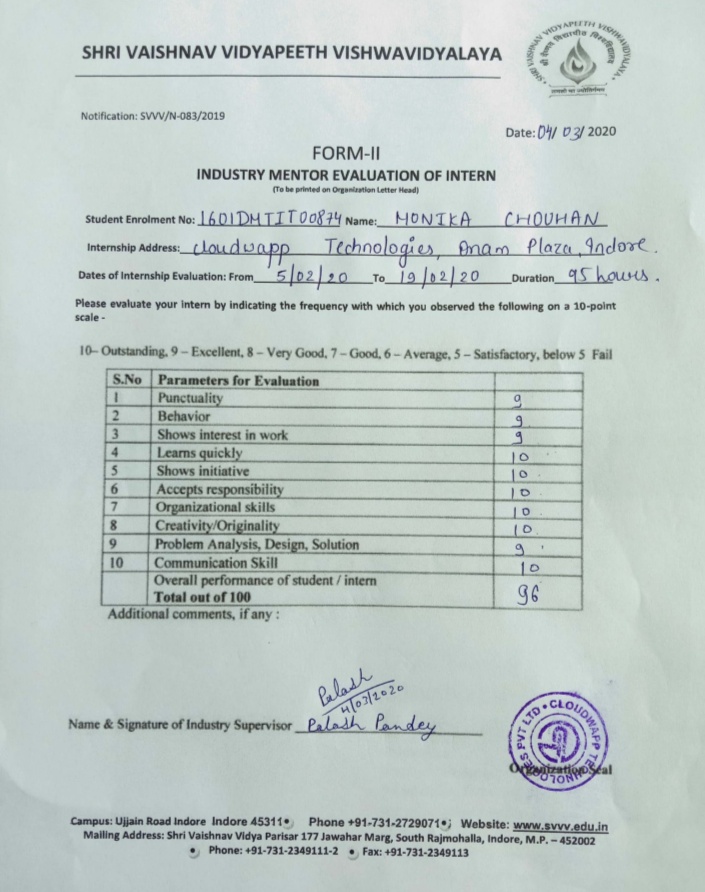 SHRI VAISHNAV VIDYAPEETH VISHWAVIDYALAYA
SHRI VAISHNAV VIDYAPEETH VISHWAVIDYALAYA
Notification: SVVV/N-083/2019
Date: 04/03/2020
FORM-II
INDUSTRY MENTOR EVALUATION OF INTERN
(To be printed on Organization Letter Head)
Student Enrolment No: 1601DMTIT00874 Name: MONIKA CHOUHAN
Internship Address: Cloudwapp Technologies, Anam Plaza, Indore.
Dates of Internship Evaluation: From 5/02/20 To 19/02/20 Duration 95 hours.
Please evaluate your intern by indicating the frequency with which you observed the following on a 10-point
scale -
10– Outstanding, 9 – Excellent, 8 – Very Good, 7 – Good, 6 – Average, 5 – Satisfactory, below 5 Fail
S.No Parameters for Evaluation
1 Punctuality 9
2 Behavior 9
3 Shows interest in work 9
4 Learns quickly 10
5 Shows initiative 10
6 Accepts responsibility 10
7 Organizational skills 10
8 Creativity/Originality 10
9 Problem Analysis, Design, Solution 9
10 Communication Skill 10
Overall performance of student / intern
Total out of 100 96
Additional comments, if any :
Palash
4/03/2020
Name & Signature of Industry Supervisor Palash Pandey
CLOUDWAPP TECHNOLOGIES PVT LTD
Organization Seal
Campus: Ujjain Road Indore Indore 45311 Phone +91-731-2729071 ; Website: www.svvv.edu.in
Mailing Address: Shri Vaishnav Vidya Parisar 177 Jawahar Marg, South Rajmohalla, Indore, M.P. – 452002
Phone: +91-731-2349111-2 • Fax: +91-731-2349113